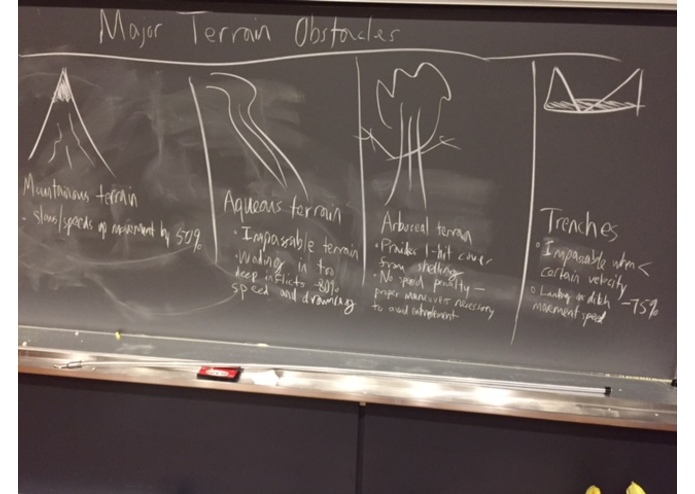 Major Terrain Obstacles
Mountainous terrain
- slows/speeds up movement by 50%
Aqueous terrain
• Impassable terrain
• Wading in too
deep inflicts -80%
speed and drowning
Arboreal terrain
• Provides 1-hit cover
from shelling
• No speed penalty -
proper maneuvers necessary
to avoid entanglement
Trenches
• Impassable when <
certain velocity
• Landing in ditch -75%
movement speed